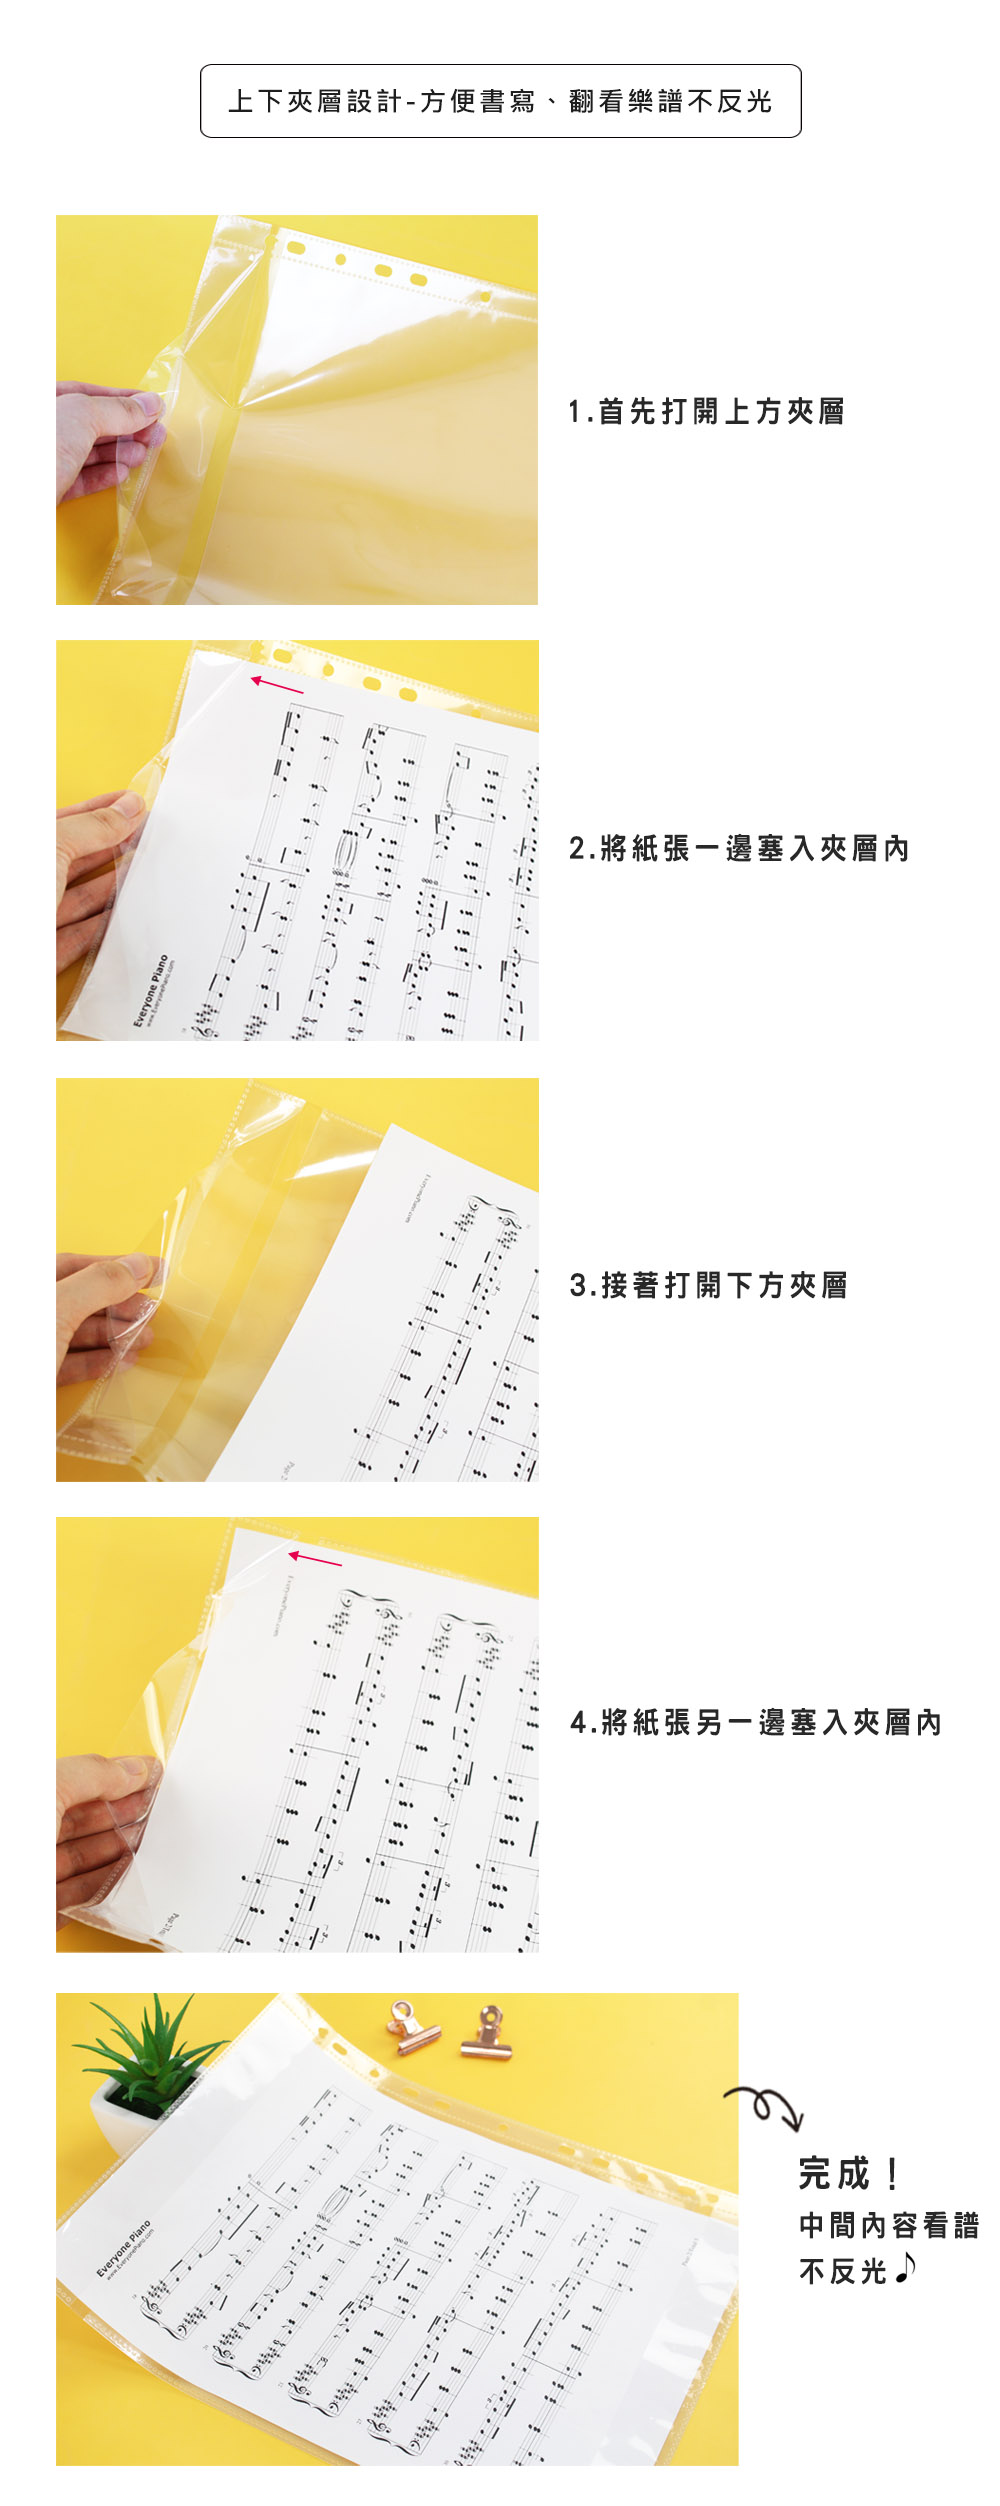 上下夾層設計-方便書寫、翻看樂譜不反光
1.首先打開上方夾層
2.將紙張一邊塞入夾層內
Everyone Piano
www.EveryonePiano.com
3.接著打開下方夾層
4.將紙張另一邊塞入夾層內
Everyone Piano
www.EveryonePiano.com
完成！
中間內容看譜
不反光♪